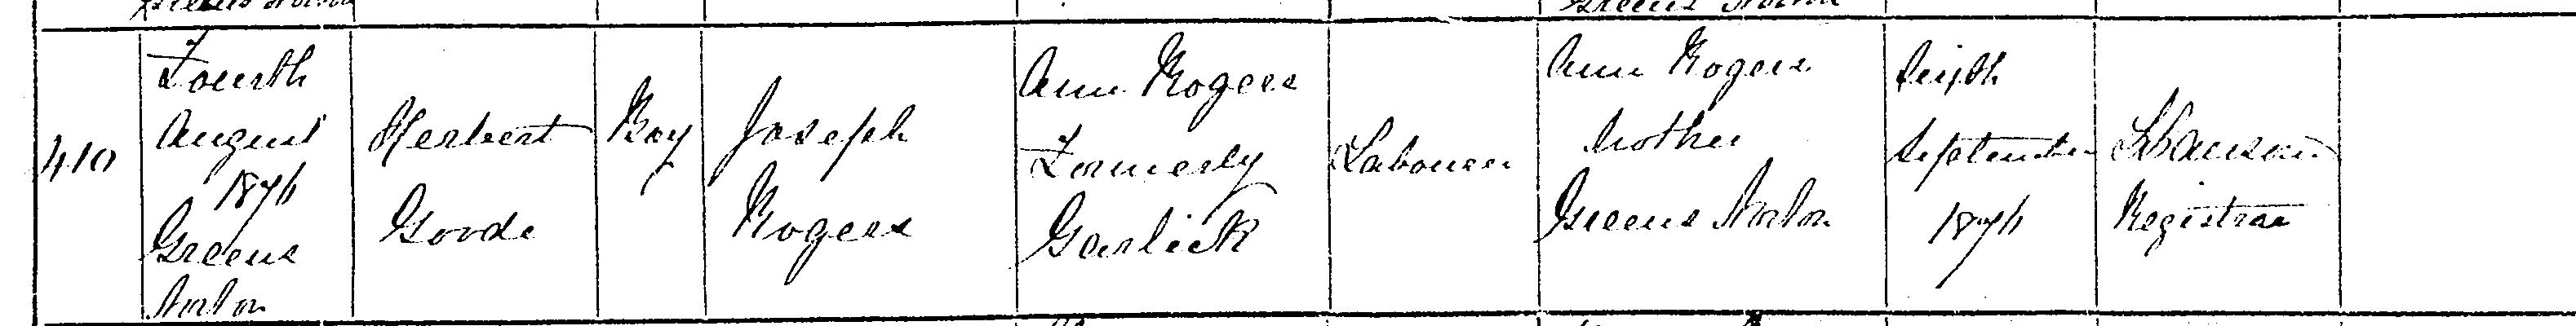 410
Fourth
August
1876
Greens
Norton
Herbert
Goode
Boy
Joseph
Rogers
Ann Rogers
Formerly
Garlick
Labourer
Ann Rogers
Mother
Greens Norton
Sixth
September
1876
Registrar